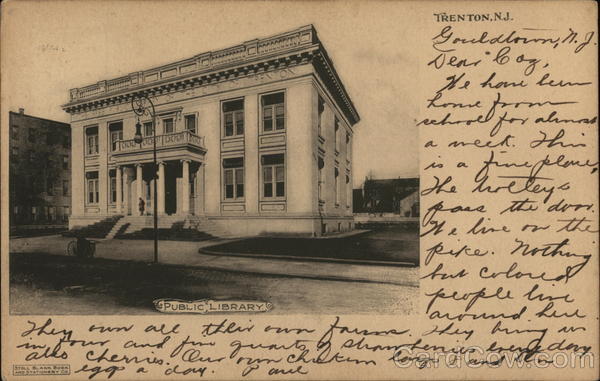 TRENTON, N.J.
Gouldtown, N.J.
Dear Coz,
We have been
home from
school for almost
a week. This
is a fine place,
The trolleys
pass the door.
We live on the
pike. Nothing
but colored
people live
around here
They own all their own farms. They bring us
in four and five quarts of strawberries every day
also cherries. Our own chickens lay
egg a day. Paul
PUBLIC LIBRARY
STOLL BLANK BOOK
AND STATIONERY CO.
CardCow.com